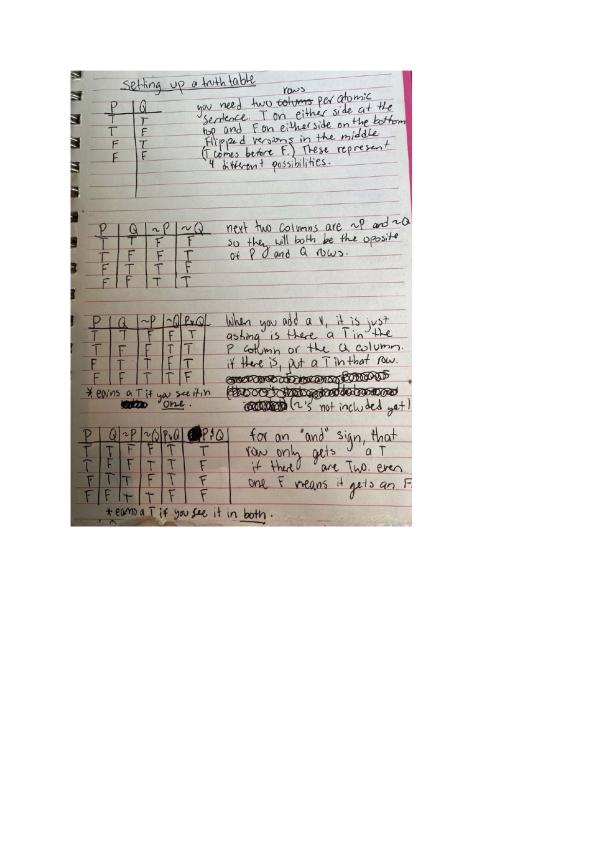 Setting up a truth table
P Q
T T
T F
F T
F F
rows
you need two colums per atomic
sentence. T on either side at the
top and F on either side on the bottom
Flipped versions in the middle
(T comes before F.) These represent
4 different possibilities.
P Q ~P ~Q
T T F F
T F F T
F T T F
F F T T
next two columns are ~P and ~Q
so they will both be the oposite
of P and Q rows.
P Q ~P ~Q PvQ
T T F F T
T F F T T
F T T F T
F F T T F
*earns a T if you see it in
one.
When you add a v, it is just
asking is there a T in the
P column or the Q column.
if there is, put a T in that row.
(~'s not included yet)
P Q ~P ~Q PvQ P&Q
T T F F T T
T F F T T F
F T T F T F
F F T T F F
*earns a T if you see it in both.
for an "and" sign, that
row only gets a T
if there are Two. even
one F means it gets an F.